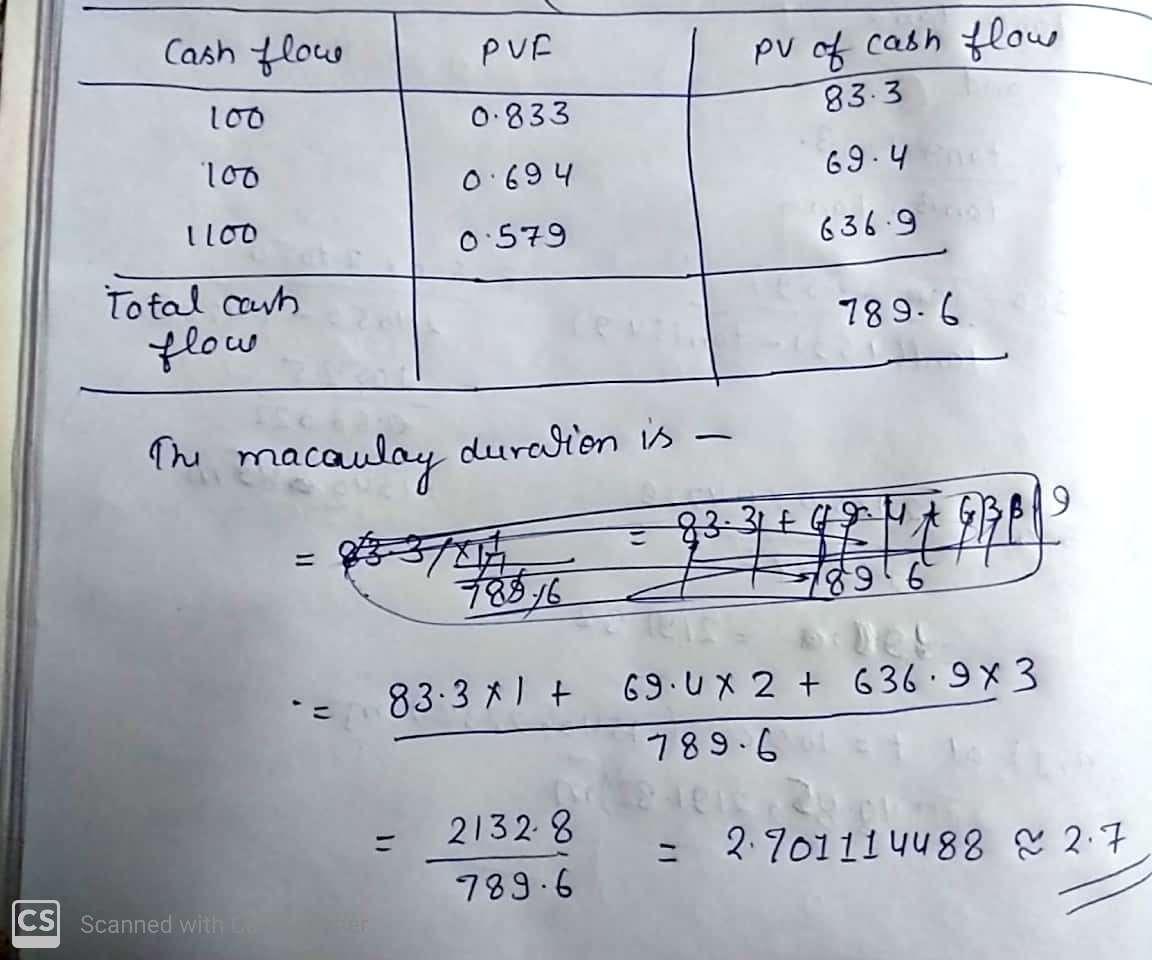 Cash flow PVF PV of cash flow
100 0.833 83.3
100 0.694 69.4
1100 0.579 636.9
Total cash flow 789.6
The macaulay duration is —
= 83.3 × 1 + 69.4 × 2 + 636.9 × 3
789.6
= 2132.8 = 2.701114488 ≈ 2.7
789.6
CS Scanned with